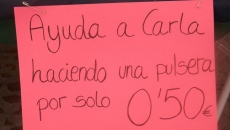 Ayuda a Carla
haciendo una pulsera
por solo 0'50€